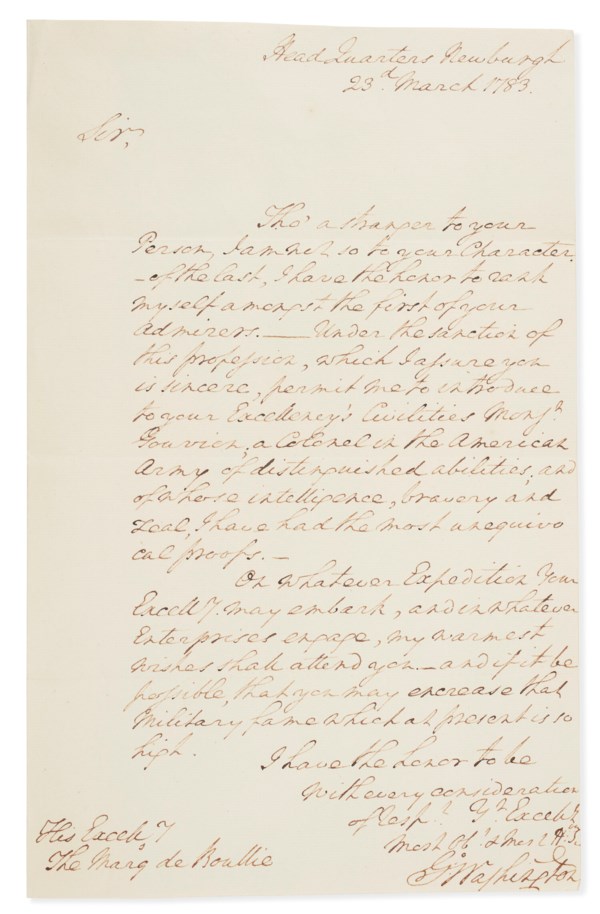 Head Quarters Newburgh
23d. March 1783.
Sir,
Tho' a stranger to your
Person, I am not so to your Character.
– of the last, I have the honor to rank
myself amongst the first of your
admirers. — Under the sanction of
this profession, which I assure you
is sincere, permit me to introduce
to your Excellency's Civilities Monsr.
Gouvion, a Colonel in the American
Army of distinguished abilities, and
of whose intelligence, bravery and
zeal, I have had the most unequivo
cal proofs. –
On whatever Expedition Your
Excelly. may embark, and in whatever
Enterprises engage, my warmest
wishes shall attend you – and if it be
possible, that you may encrease that
Military fame which at present is so
high.
I have the honor to be
With every consideration
of respt. Yr. Excelly's
Most Obt. & Most H. Se
Go: Washington
His Excelly
The Marq. de Boullie